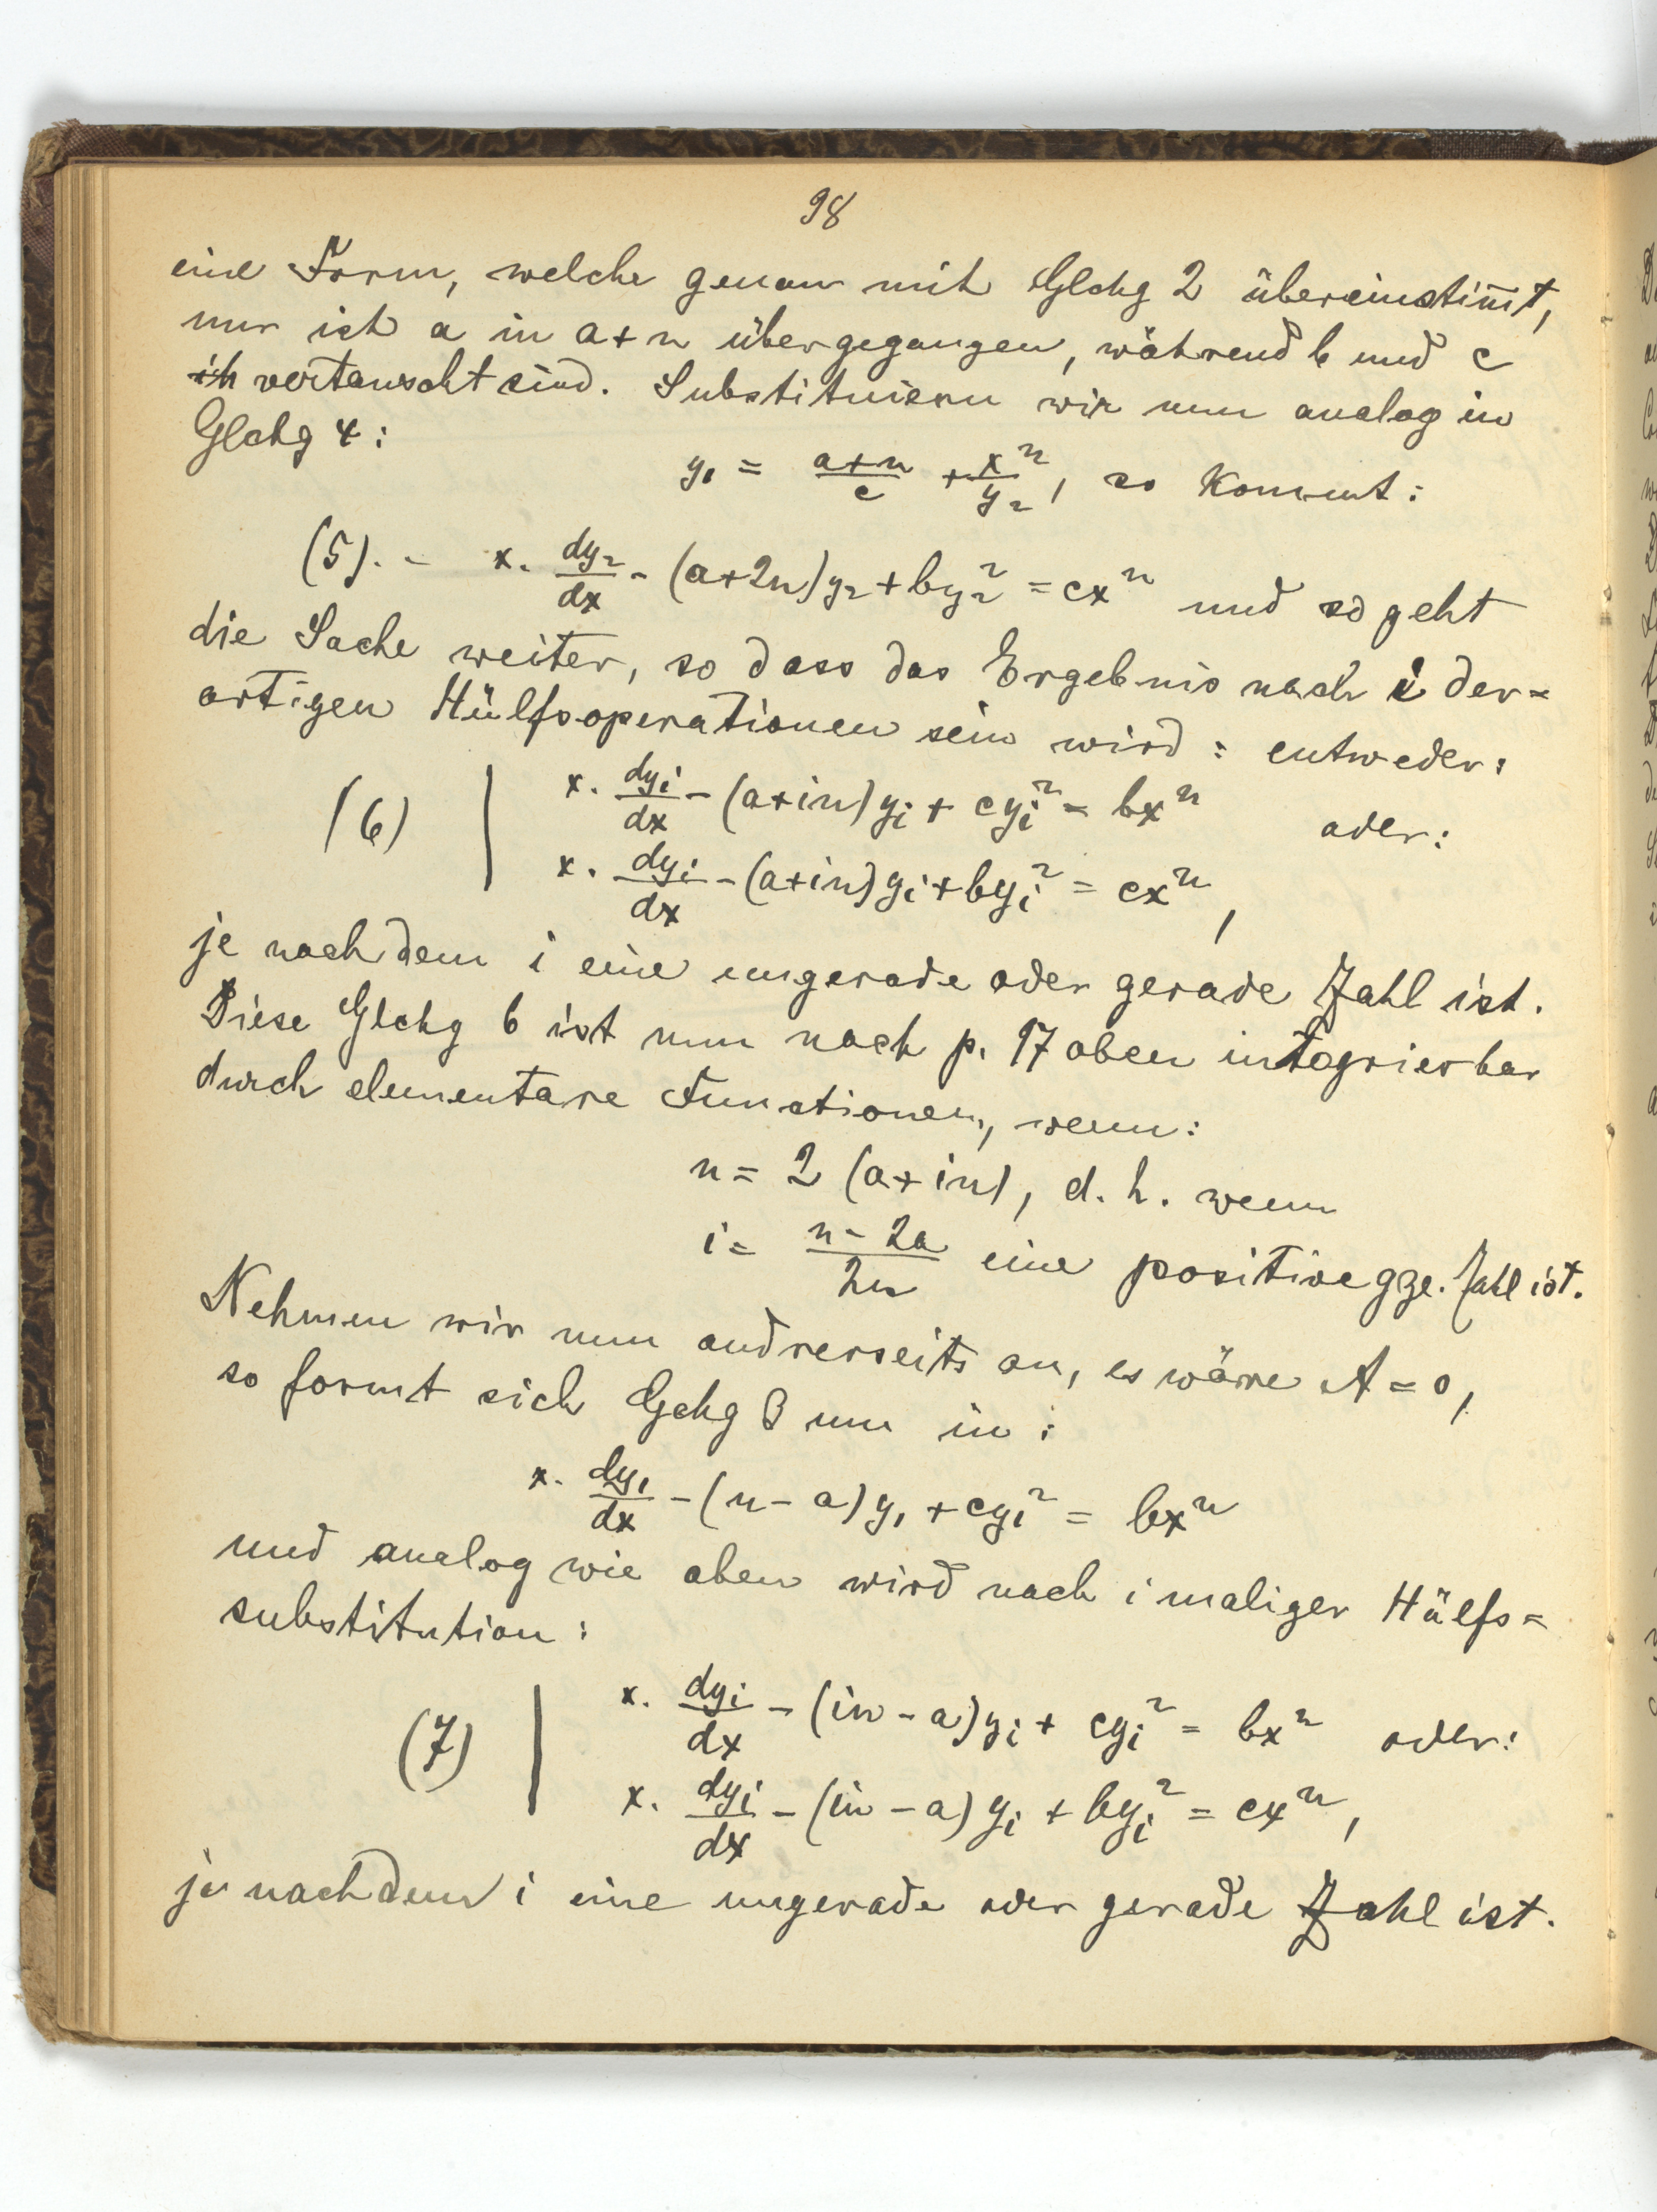 98
eine Form, welche genau mit Glchg 2 übereinstim̅t,
nur ist a in a+n übergegangen, während b und c
vertauscht sind. Substituieren wir nun analog in
Glchg 4:
y₁ = (a+n)/c + xⁿ/y₂, so kommt:
(5). - x. dy₂/dx - (a+2n)y₂ + by₂² = cxⁿ und so geht
die Sache weiter, so dass das Ergebnis nach i der=
artigen Hülfsoperationen sein wird: entweder:
(6) | x. dyᵢ/dx - (a+in)yᵢ + cyᵢ² = bxⁿ oder:
x. dyᵢ/dx - (a+in)yᵢ + byᵢ² = cxⁿ,
je nachdem i eine ungerade oder gerade Zahl ist.
Diese Glchg 6 ist nun nach p. 97 oben integrierbar
durch elementare Functionen, wenn:
n = 2 (a+in), d. h. wenn
i = (n-2a)/2n eine positive gze. Zahl ist.
Nehmen wir nun andrerseits an, es wäre A = 0,
so formt sich Gchg 3 um in:
x. dy₁/dx - (n-a)y₁ + cy₁² = bxⁿ
und analog wie oben wird nach i maliger Hülfs=
substitution:
(7) | x. dyᵢ/dx - (in-a)yᵢ + cyᵢ² = bxⁿ oder:
x. dyᵢ/dx - (in-a)yᵢ + byᵢ² = cxⁿ,
je nachdem i eine ungerade oder gerade Zahl ist.